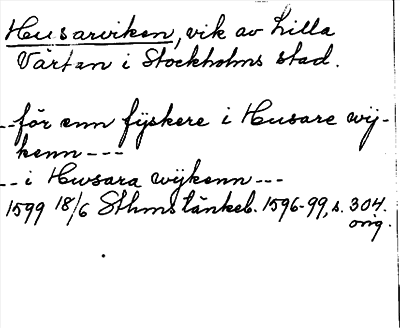 Husarviken, vik av Lilla
Värtan i Stockholms stad.
--för enn fijskere i Husare wij-
kenn---
-- i Hwsara wijkenn---
1599 18/6 Sthms tänkeb. 1596-99, s. 304.
orig.